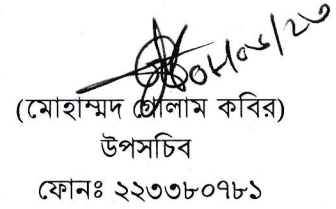 ০৮/০৬/২৩
(মোহাম্মদ গোলাম কবির)
উপসচিব
ফোনঃ ২২৩৩৮০৭৮১